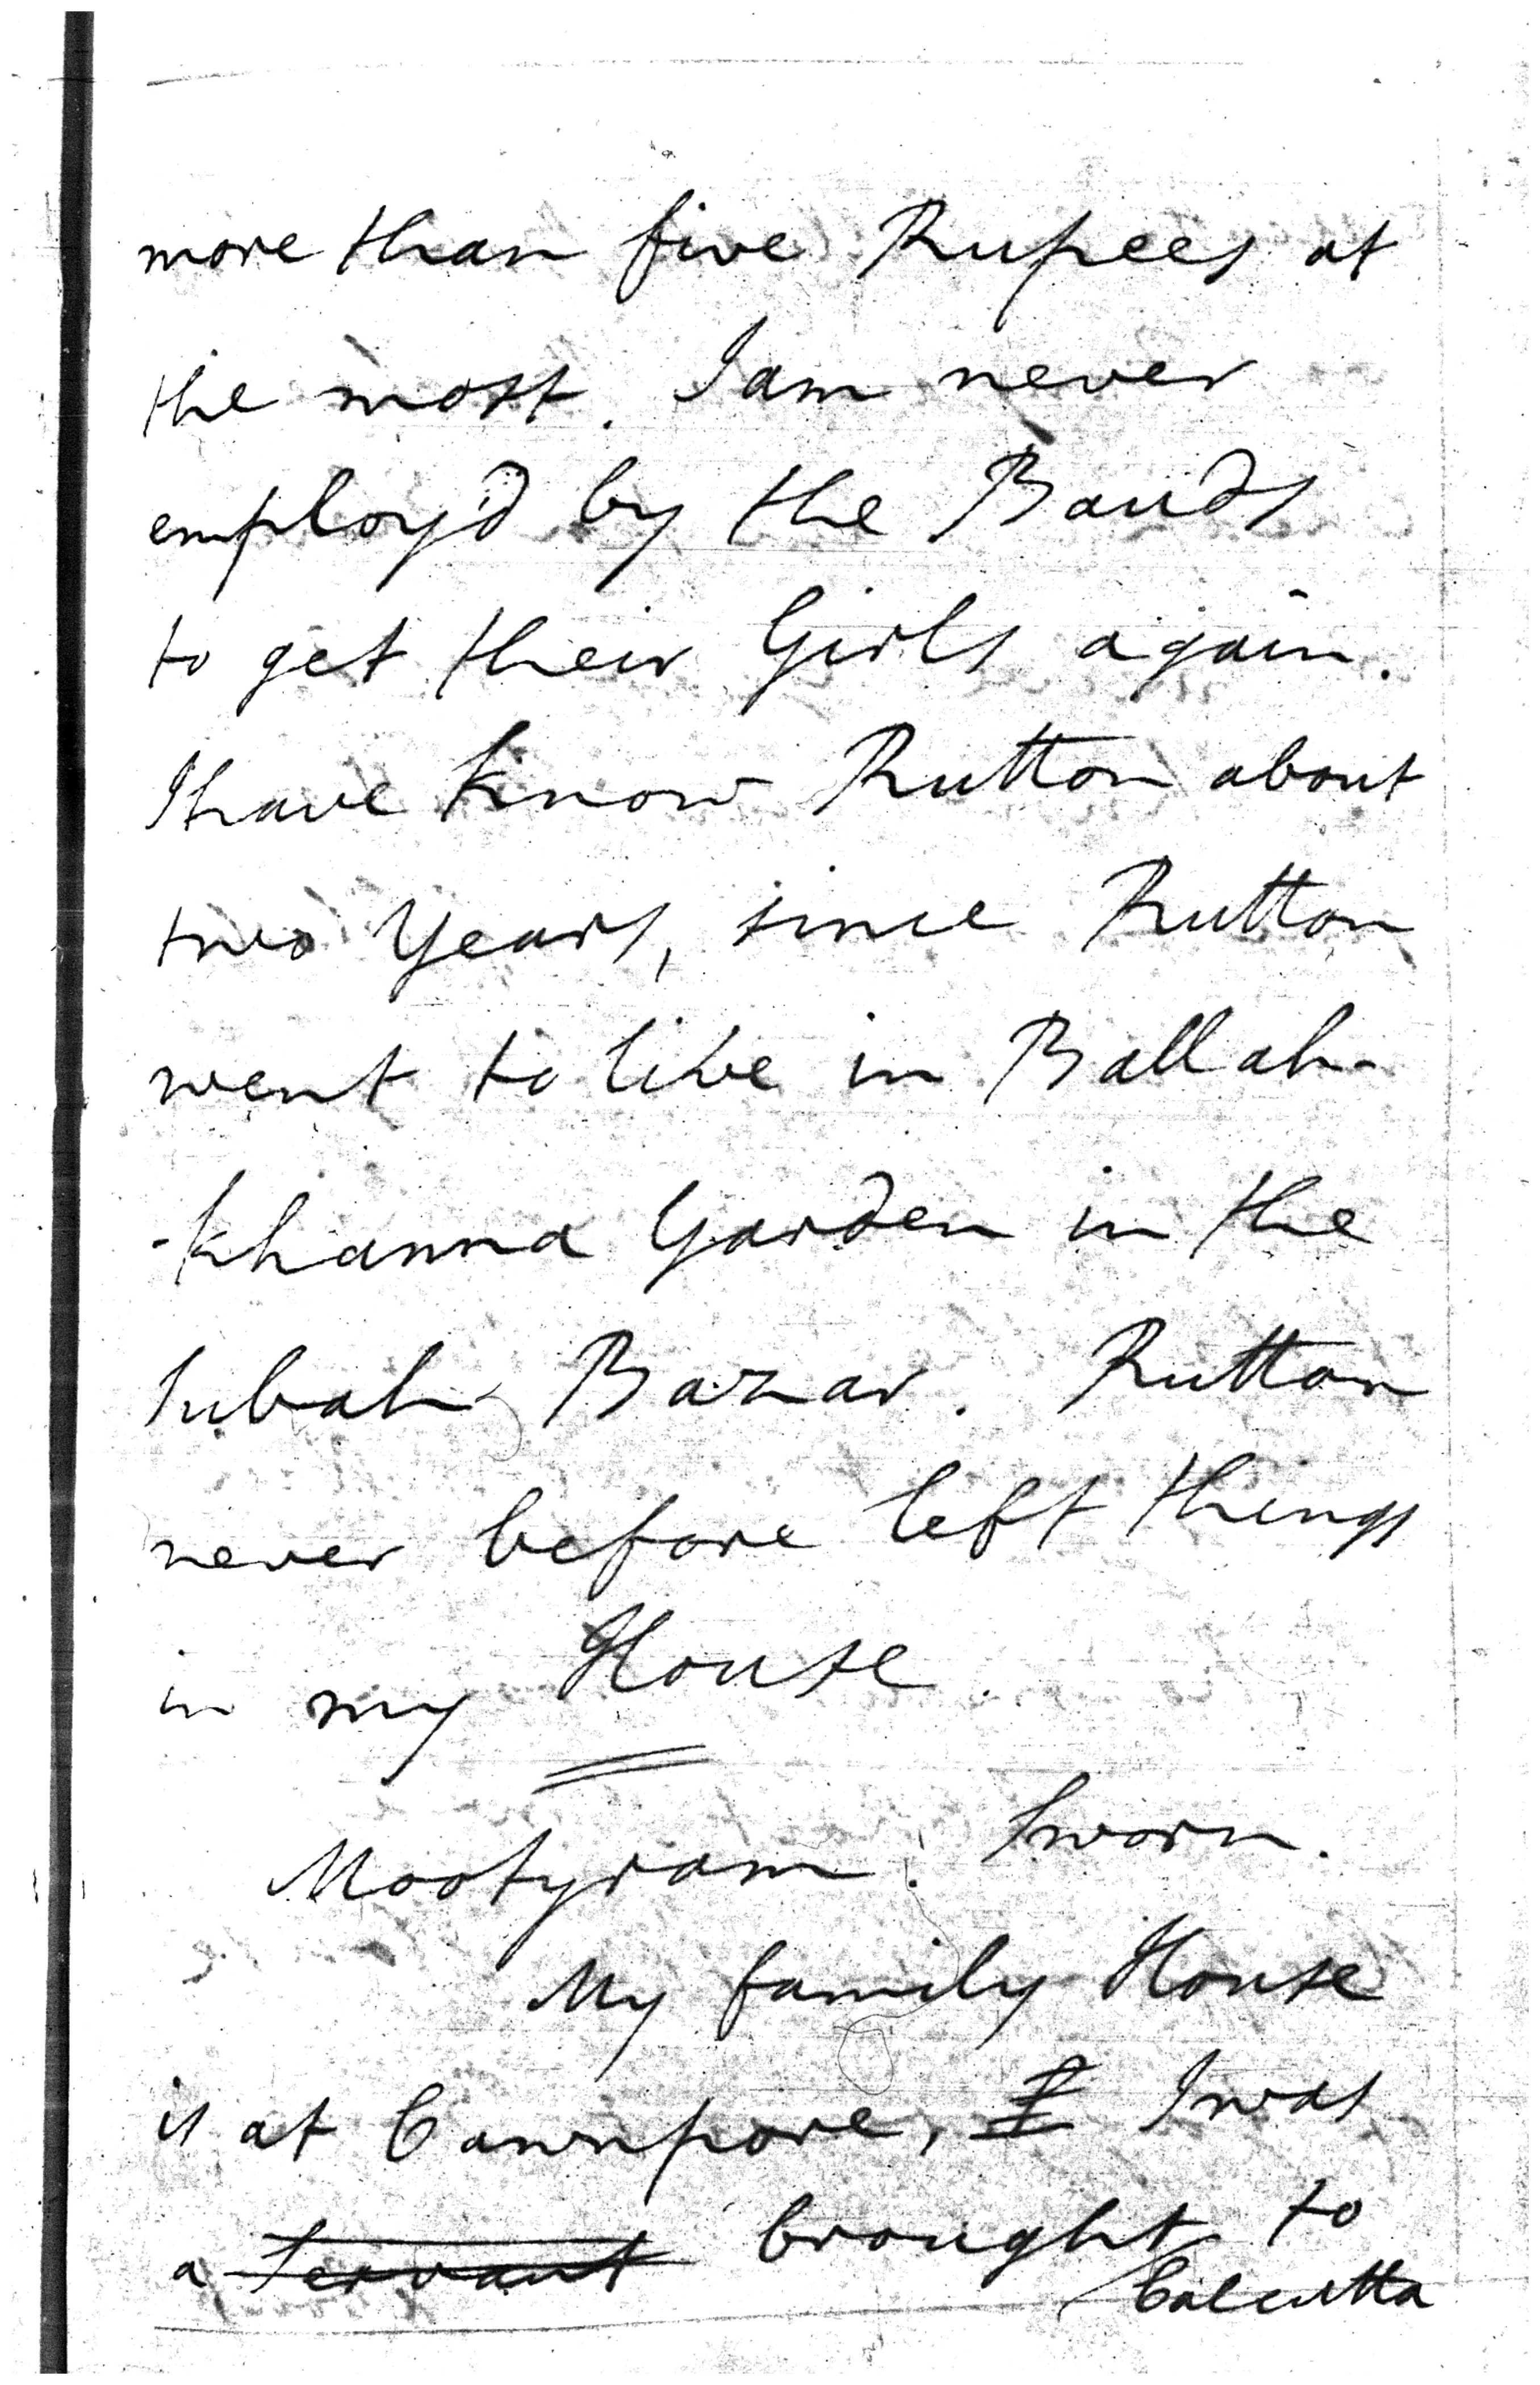 more than five Rupees at
the most. I am never
employ'd by the Bauds
to get their Girls again.
I have know Rutton about
two Years, since Rutton
went to live in Ballah-
-khanna Garden in the
Subah Bazar. Rutton
never before left things
in my House.
Mootyram. Sworn.
My family House
is at Cawnpore, I I was
a servant brought to
Calcutta